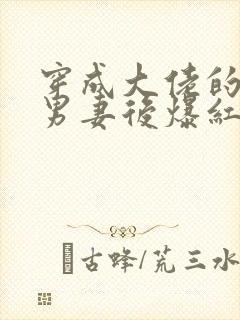 穿成大佬的
男妻後爆紅
古蜂/荒三水